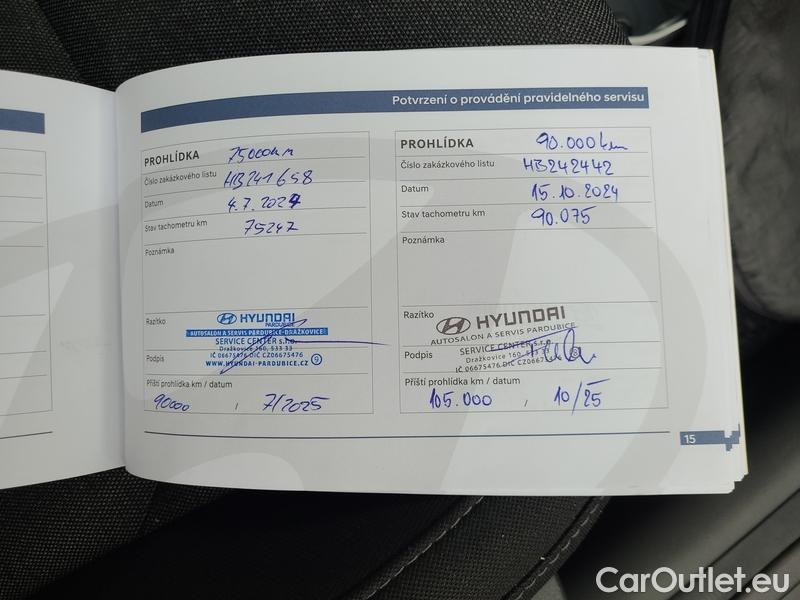 Potvrzení o provádění pravidelného servisu
PROHLÍDKA 75000km
Číslo zakázkového listu HB241658
Datum 4.7.2024
Stav tachometru km 75247
Poznámka
Razítko
HYUNDAI
PARDUBICE
AUTOSALON A SERVIS PARDUBICE-DRAŽKOVICE
SERVICE CENTER s.r.o.
Dražkovice 160, 533 33
IČ 06675476 DIČ CZ06675476
WWW.HYUNDAI-PARDUBICE.CZ 9
Podpis
Příští prohlídka km / datum
90000 / 7/2025
PROHLÍDKA 90.000km
Číslo zakázkového listu HB242442
Datum 15.10.2024
Stav tachometru km 90.075
Poznámka
Razítko
HYUNDAI
AUTOSALON A SERVIS PARDUBICE
SERVICE CENTER s.r.o.
Dražkovice 160, 533 33
IČ 06675476 DIČ
Podpis
Příští prohlídka km / datum
105.000 / 10/25
15
CarOutlet.eu